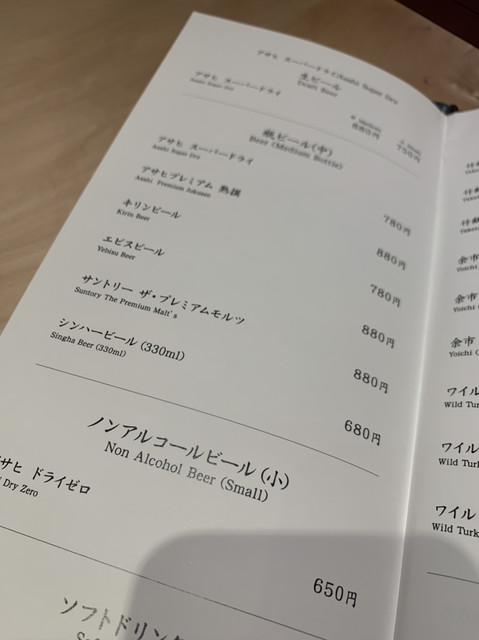 アサヒ スーパードライ/Asahi Super Dry
生ビール
Draft Beer
アサヒ スーパードライ
Asahi Super Dry
880円
750円
瓶ビール(中)
Beer (Medium Bottle)
アサヒ スーパードライ
Asahi Super Dry
780円
アサヒプレミアム 熟撰
Asahi Premium Jukusen
880円
キリンビール
Kirin Beer
780円
エビスビール
Yebisu Beer
880円
サントリー ザ・プレミアムモルツ
Suntory The Premium Malt's
880円
シンハービール (330ml)
Singha Beer (330ml)
680円
ノンアルコールビール (小)
Non Alcohol Beer (Small)
サヒ ドライゼロ
Dry Zero
650円
ソフトドリンク
余市
Yoichi
余市
Yoichi
余市
Yoichi (
ワイル
Wild Tur
ワイル
Wild Turk
ワイル
Wild Turk